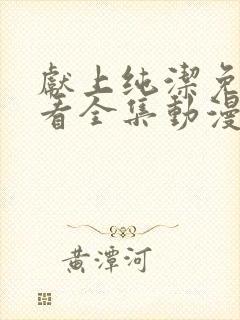 獻上纯潔免
看全集動漫
黄潭河